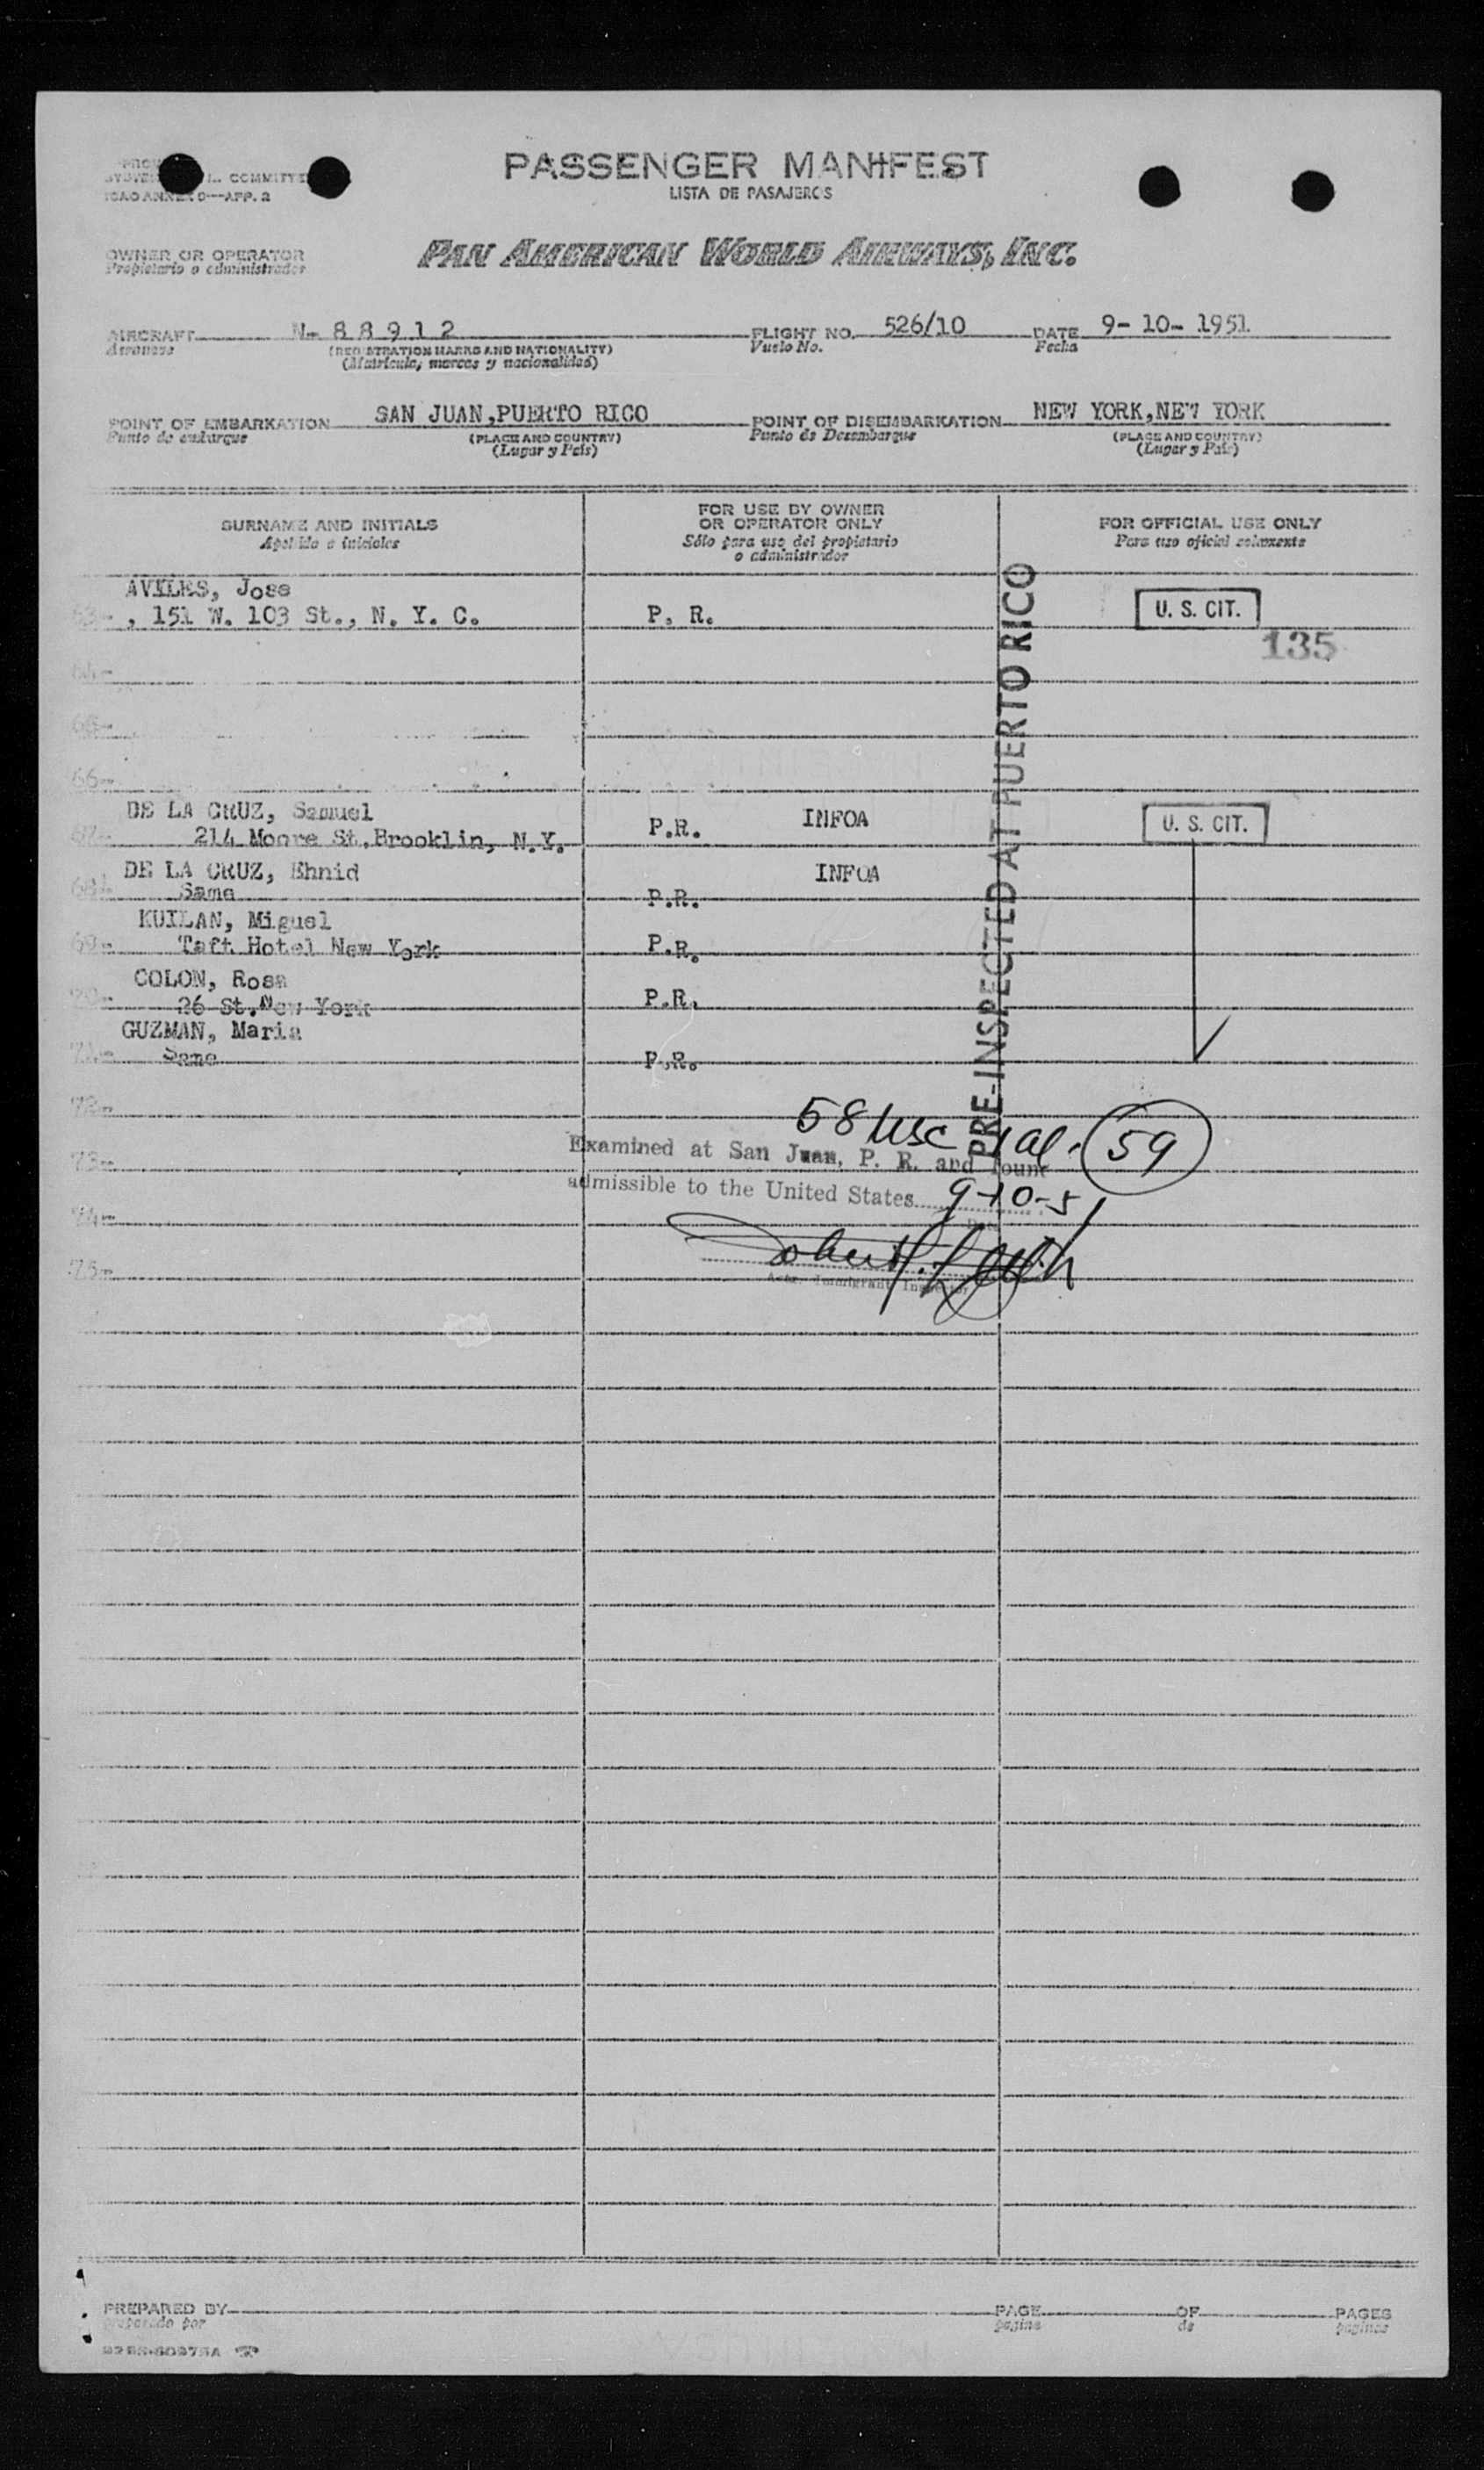 COMMITTEE
ICAO ANNEX 9—APP. 2
PASSENGER MANIFEST
LISTA DE PASAJEROS
OWNER OR OPERATOR
Propietario o administrador
PAN AMERICAN WORLD AIRWAYS, INC.
AIRCRAFT N- 88912 FLIGHT NO. 526/10 DATE 9- 10- 1951
Aeronave (REGISTRATION MARKS AND NATIONALITY) Vuelo No. Fecha
(Matrícula, marcas y nacionalidad)
POINT OF EMBARKATION SAN JUAN,PUERTO RICO POINT OF DISEMBARKATION NEW YORK,NEW YORK
Punto de embarque (PLACE AND COUNTRY) Punto de Desembarque (PLACE AND COUNTRY)
(Lugar y País) (Lugar y País)
SURNAME AND INITIALS
Apellido e iniciales
FOR USE BY OWNER
OR OPERATOR ONLY
Sólo para uso del propietario
o administrador
FOR OFFICIAL USE ONLY
Para uso oficial solamente
AVILES, Jose
63- , 151 W. 103 St., N. Y. C. P. R. U. S. CIT.
135
64-
65-
66-
DE LA CRUZ, Samuel INFOA
67- 214 Moore St.Brooklin, N.Y. P.R. U. S. CIT.
DE LA CRUZ, Ehnid INFOA
68- Same P.R.
KUILAN, Miguel
69- Taft Hotel New York P.R.
COLON, Rosa
70- 26 St.New York P.R.
GUZMAN, Maria
71- Same P.R.
PRE-INSPECTED AT PUERTO RICO
72-
58 usc 1 al. 59
73- Examined at San Juan, P. R. and found
admissible to the United States 9-10-51
74-
75-
Immigrant Inspector
PREPARED BY PAGE OF PAGES
preparado por pagina de paginas